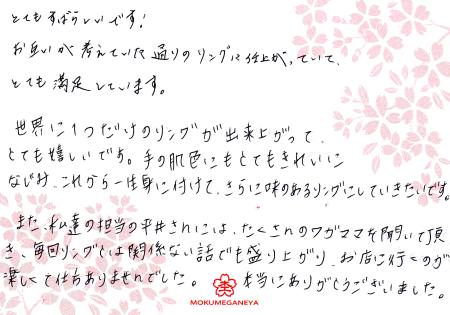 とてもすばらしいです!
お互いが考えていた通りのリングに仕上がっていて、
とても満足しています。
世界に1つだけのリングが出来上がって、
とても嬉しいです。手の肌色にもとてもきれいに
なじみ、これから一生身に付けて、さらに味のあるリングにしていきたいです。
また、私達の担当の平井さんには、たくさんのワガママを聞いて頂
き、毎回リングとは関係ない話でも盛り上がり、お店に行くのが
楽しくて仕方ありませんでした。本当にありがとうございました。
MOKUMEGANEYA